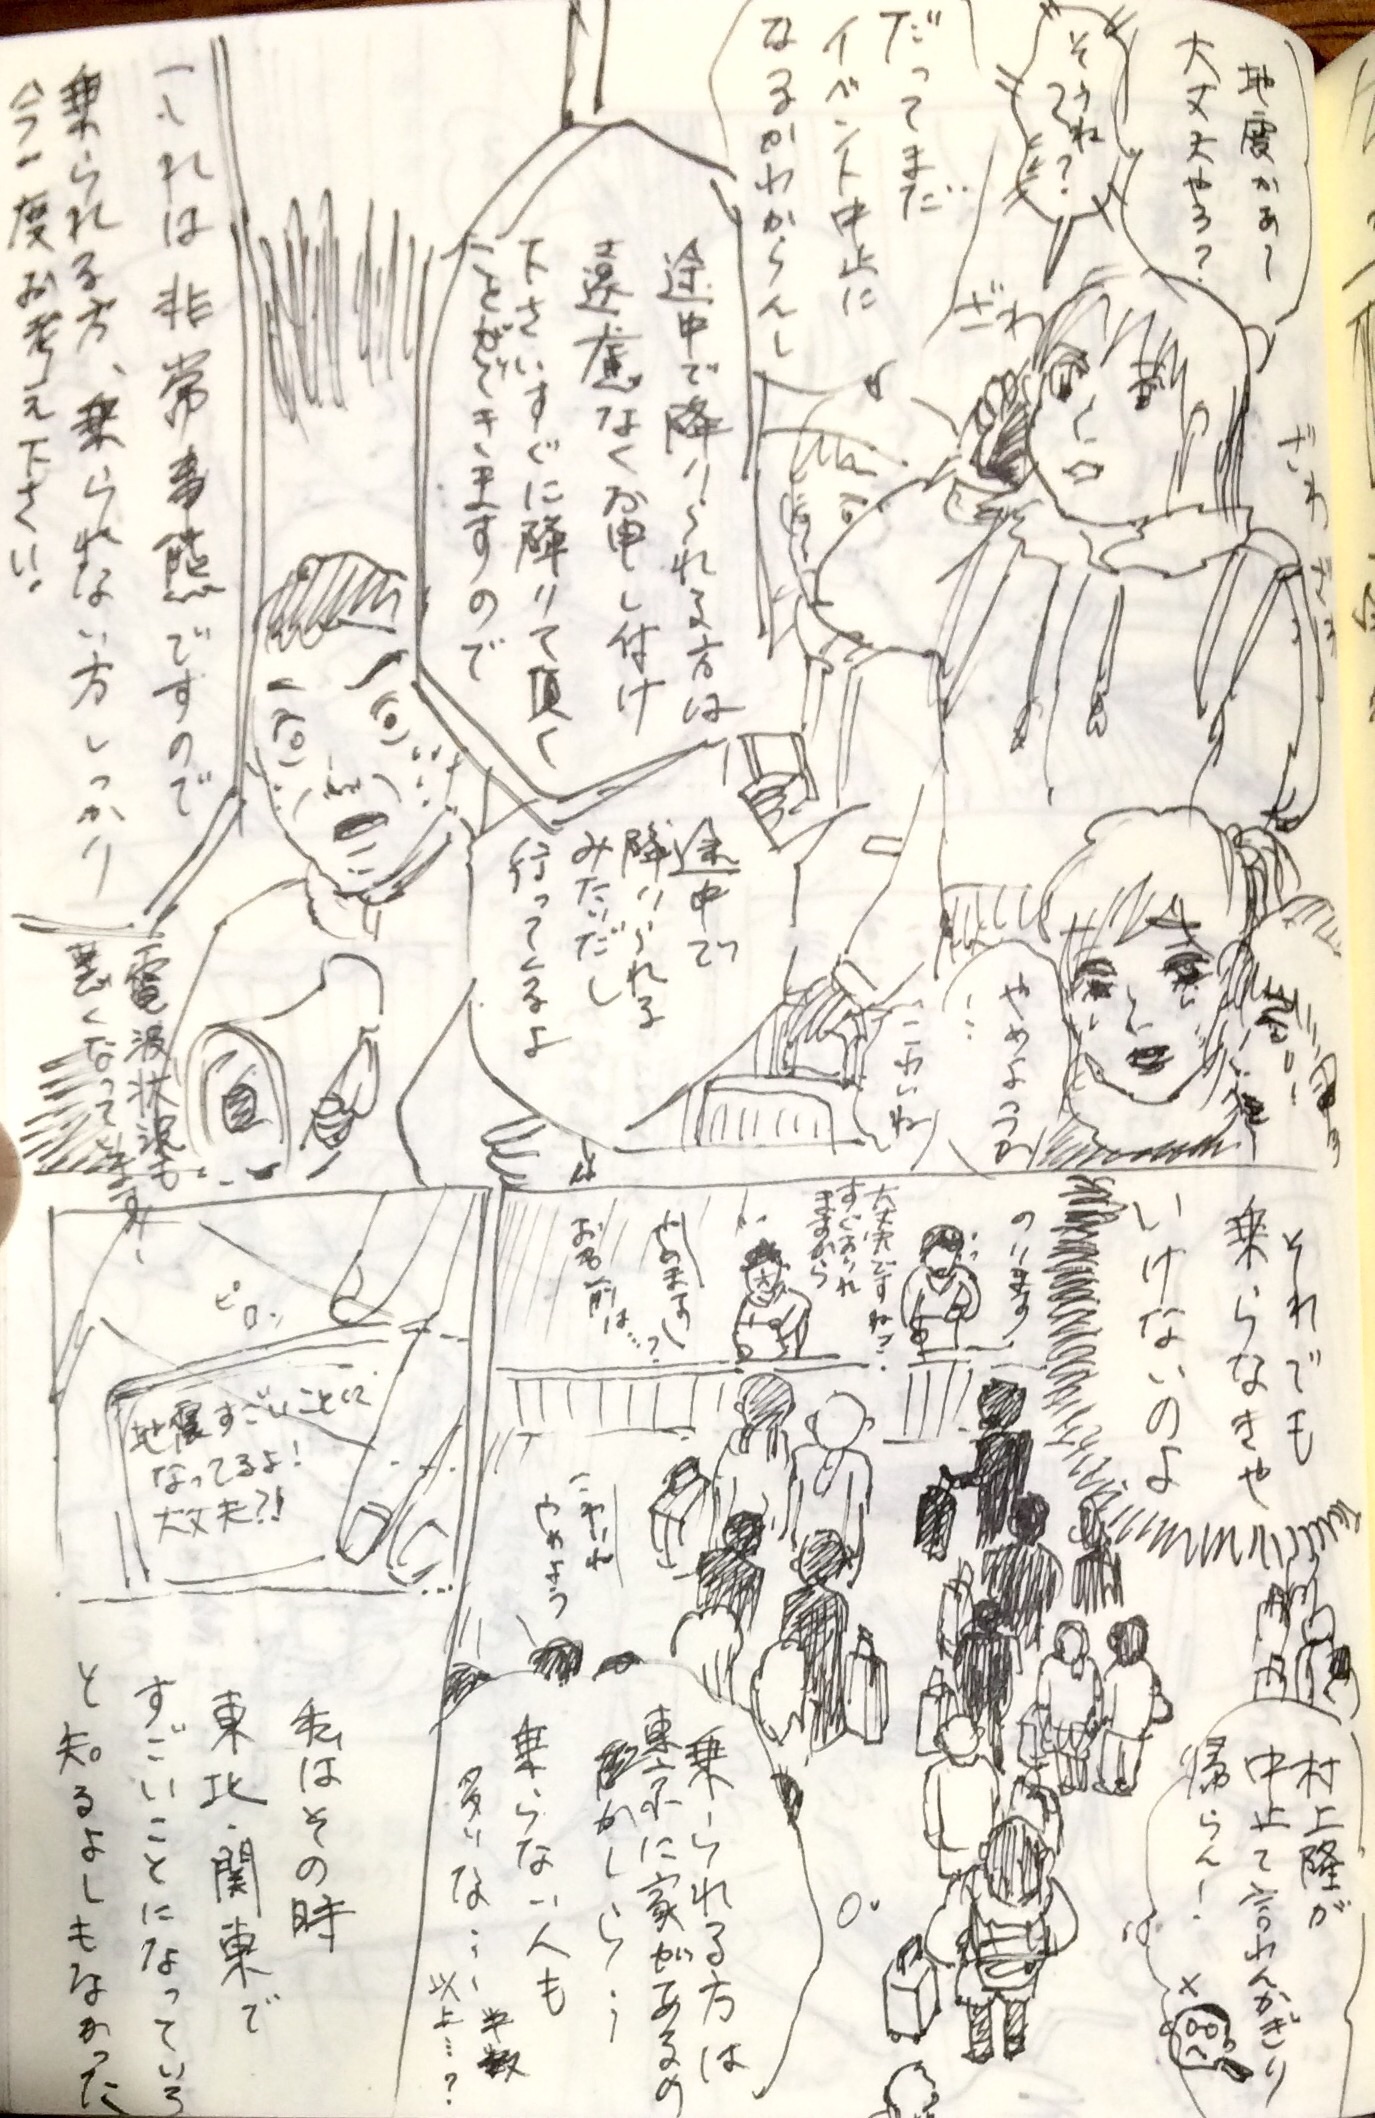 地震かあ〜
大丈夫やろ?
そうね?
だってまだ
イベント中止に
なるかわからんし
ざわ
ざわ
途中で降りられる方は
遠慮なくお申し付け
下さいすぐに降りて頂く
ことができますので
これは非常事態ですので
乗られる方、乗られない方しっかり
今一度お考え下さい。
やめようか
…
こわいね
途中で
降りられる
みたいだし
行ってくるよ
電波状況も
悪くなってますー
それでも
乗らなきゃ
いけないのよ
のります
大丈夫ですね?
すぐおりれ
ますから
やめます
お名前は…?
こわいね
やめよう
村上隆が
中止て言わんかぎり
帰らん!
乗られる方は
東京に家があるの
かしら…
乗らない人も
多いな…
半数
以上…?
ピロッ
地震すごいことに
なってるよ!
大丈夫?!
私はその時
東北・関東で
すごいことになっている
と知るよしもなかった